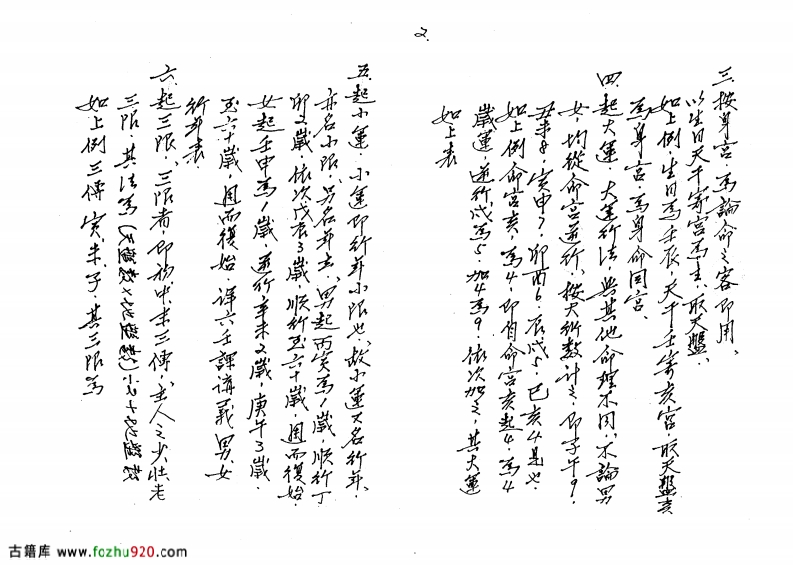 2.
三、按身宫、为論命之客即用、
以生日天干寄宫为主、取天盤、
如上例、生日为壬辰、天干壬寄亥宫、取天盤亥
为身宫、为身命同宫、
四、起大運、大運行法、與其他命理不同、不論男
女、均從命宫逆行、按天行数計之、即子午9、
丑未8、寅申7、卯酉6、辰戌5、巳亥4是也、
如上例命宫亥、为4、即自命宫亥起4、为4
歲運、逆行戌为5、加4为9、依次加之、其大運
如上表
五、起小運、小運即行年小限也、故小運又名行年、
亦名小限、男名年去、男起丙寅为1歲、順行丁
卯2歲、依次戊辰3歲、順行至六十歲、周而復始、
女起壬申为1歲、逆行辛未2歲、庚午3歲、
至六十歲、周而復始、詳六壬課講義男女
行年表
六、起三限、三限者即初中末三傳、主人之少壯老
三限、其法为(天盤数+地盤数)÷2+地盤数
如上例三傳寅未子、其三限为
古籍库 www.fozhu920.com